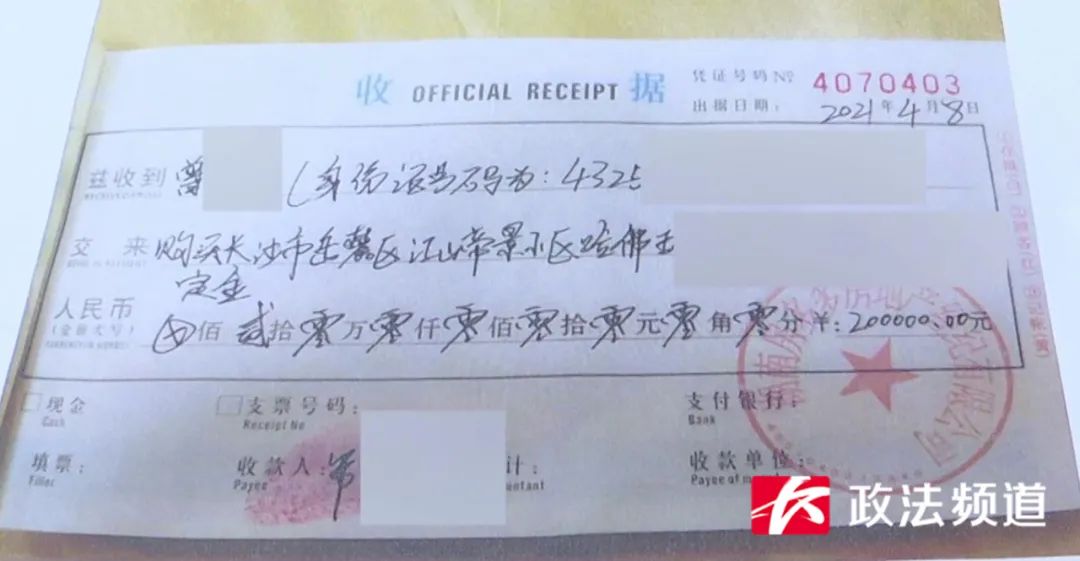 收 OFFICIAL RECEIPT 据
凭证号码№ 4070403
出据日期: 2021年4月8日
兹收到 曾 (身份证号码为: 4325
交来 购买长沙市岳麓区江山帝景小区哈佛王
定金
人民币
(金额大写) 佰 贰拾零万零仟零佰零拾零元零角零分 ¥: 200000.00元
现金 支票号码: 支付银行:
Cash Receipt No Bank
填票: 收款人: 计: 收款单位:
Filler Payee Payee of
政法频道